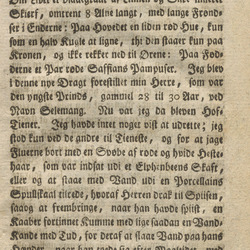 Skierf, omrent 8 Alne langt, med lange Frond-
ser i Enderne: Paa Hovedet en liden rød Hue, kun
som en halv Kugle at ligne, thi den staaer kun paa
Kronen, og ikke rekket ned til Ørene: Paa Fød-
derne et Par røde Saffians Pampuser. Jeg blev
i denne nye Dragt forestillet min Herre, som var
den yngste Prinds, gammel 28 til 30 Aar, ved
Navn Selemang. Nu var jeg da bleven Hof-
Tiener. Jeg havde intet noget vist at udrette; jeg
stod kun ved de andre til Tieneste, og for at jage
Fluerne bort med en Svøbe af røde og hvide Heste-
haar, som var indsat udi et Elphenbeens Skaft,
eller og at staae med Vand udi en Porcellains
Spyllskaal isteede, hvoraf Herren drak til Spisen,
skarv at frembringe, naar han havde spist, en
Kaaber fortinnet Kumme med lige saadan en Vand-
Kande med Tud, for deraf at slaae Vand paa hans